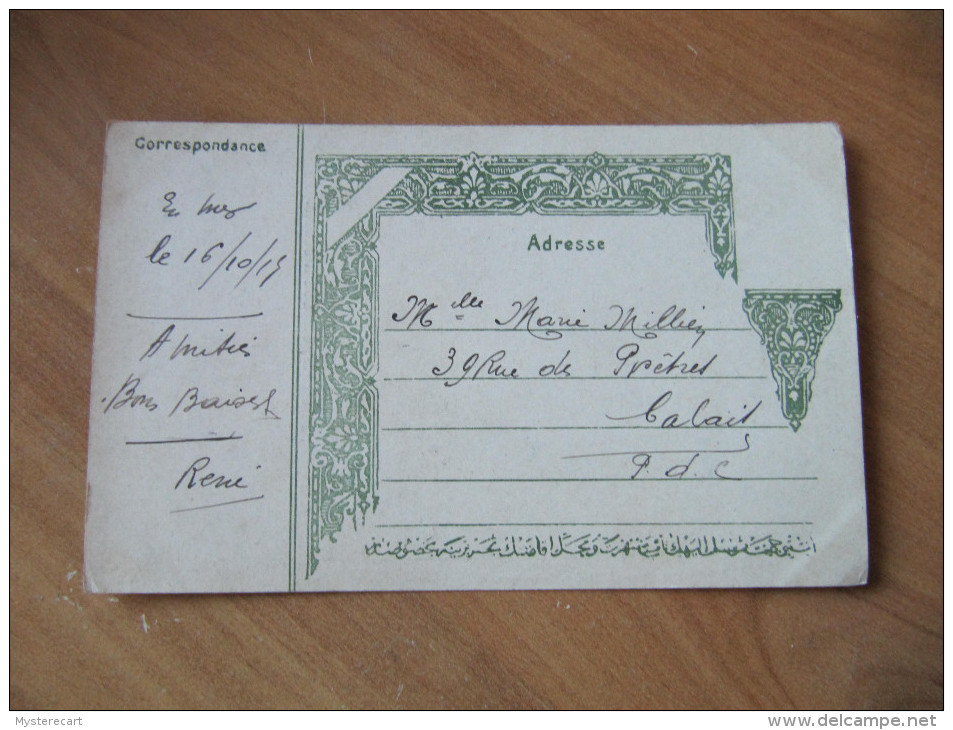 Correspondance
En mer
le 16/10/15
Amitiés
Bons Baisers
René
Adresse
Mlle Marie Millien
39 Rue des Prêtres
Calais
P. d. C
Mysterecart
www.delcampe.net